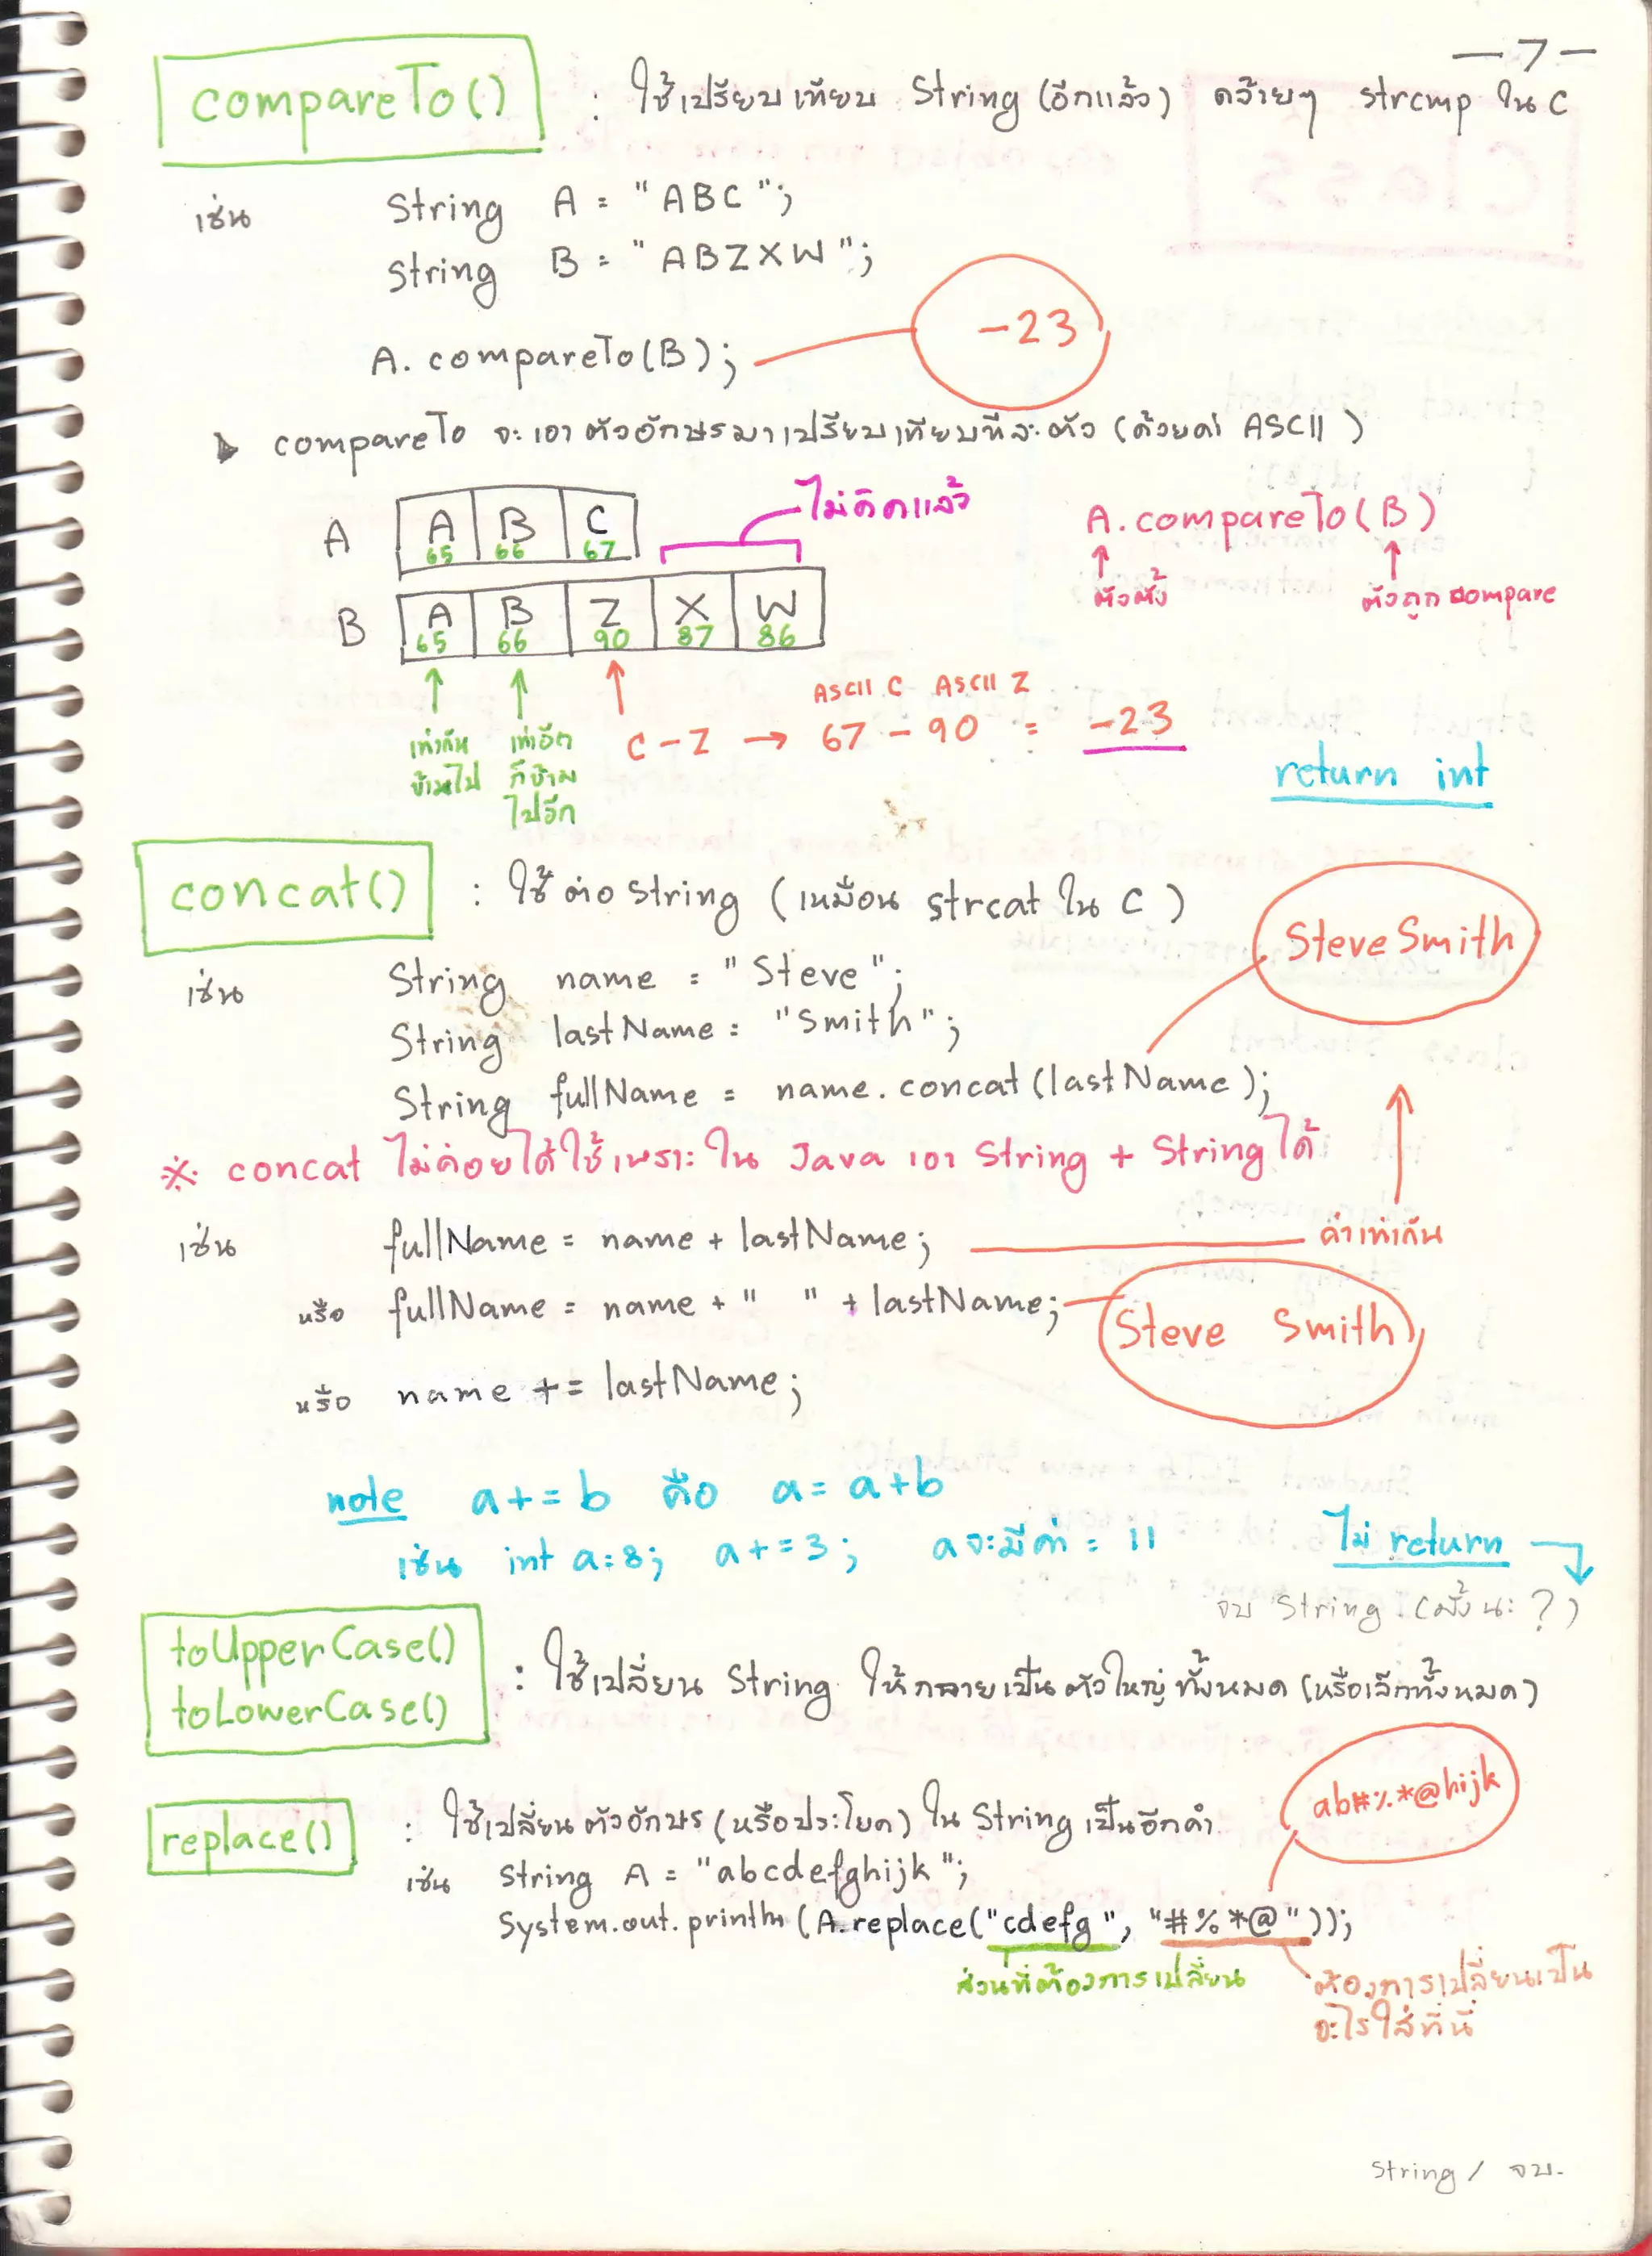 -7-
compareTo() : ใช้เปรียบเทียบ String (อีกแล้ว) คล้ายๆ strcmp ใน C
เช่น String A = "ABC";
String B = "ABZXW";
A.compareTo(B); -23
compareTo จะเอาตัวอักษรมาเปรียบเทียบทีละตัว (ด้วยค่า ASCII)
ไม่คิดแล้ว
A A B C
65 66 67
A.compareTo(B)
ตัวตั้ง ตัวถูก compare
B A B Z X W
65 66 90 87 86
ASCII C ASCII Z
C - Z → 67 - 90 = -23
เท่ากัน ข้ามไป
เท่าอีก ก็ข้าม ไปอีก
return int
concat() : ใช้ต่อ String (เหมือน strcat ใน C)
SteveSmith
เช่น String name = "Steve";
String lastName = "Smith";
String fullName = name.concat(lastName);
※ concat ไม่ค่อยได้ใช้เพราะใน Java เอา String + String ได้
เช่น fullName = name + lastName; ค่าเท่ากัน
หรือ fullName = name + " " + lastName; Steve Smith
หรือ name += lastName;
note a+=b คือ a=a+b
เช่น int a=8; a+=3; a จะมีค่า = 11
ไม่ return
จบ String (มั้งนะ?)
toUpperCase()
toLowerCase() : ใช้เปลี่ยน String ให้กลายเป็นตัวใหญ่ทั้งหมด (หรือเล็กทั้งหมด)
ab#%*@hijk
replace() : ใช้เปลี่ยนตัวอักษร (หรือประโยค) ใน String เป็นอีกคำ
เช่น String A = "abcdefghijk";
System.out.println(A.replace("cdefg", "#%*@"));
ส่วนที่ต้องการเปลี่ยน
ต้องการเปลี่ยนเป็น
อะไรใส่ที่นี่
String / จบ.